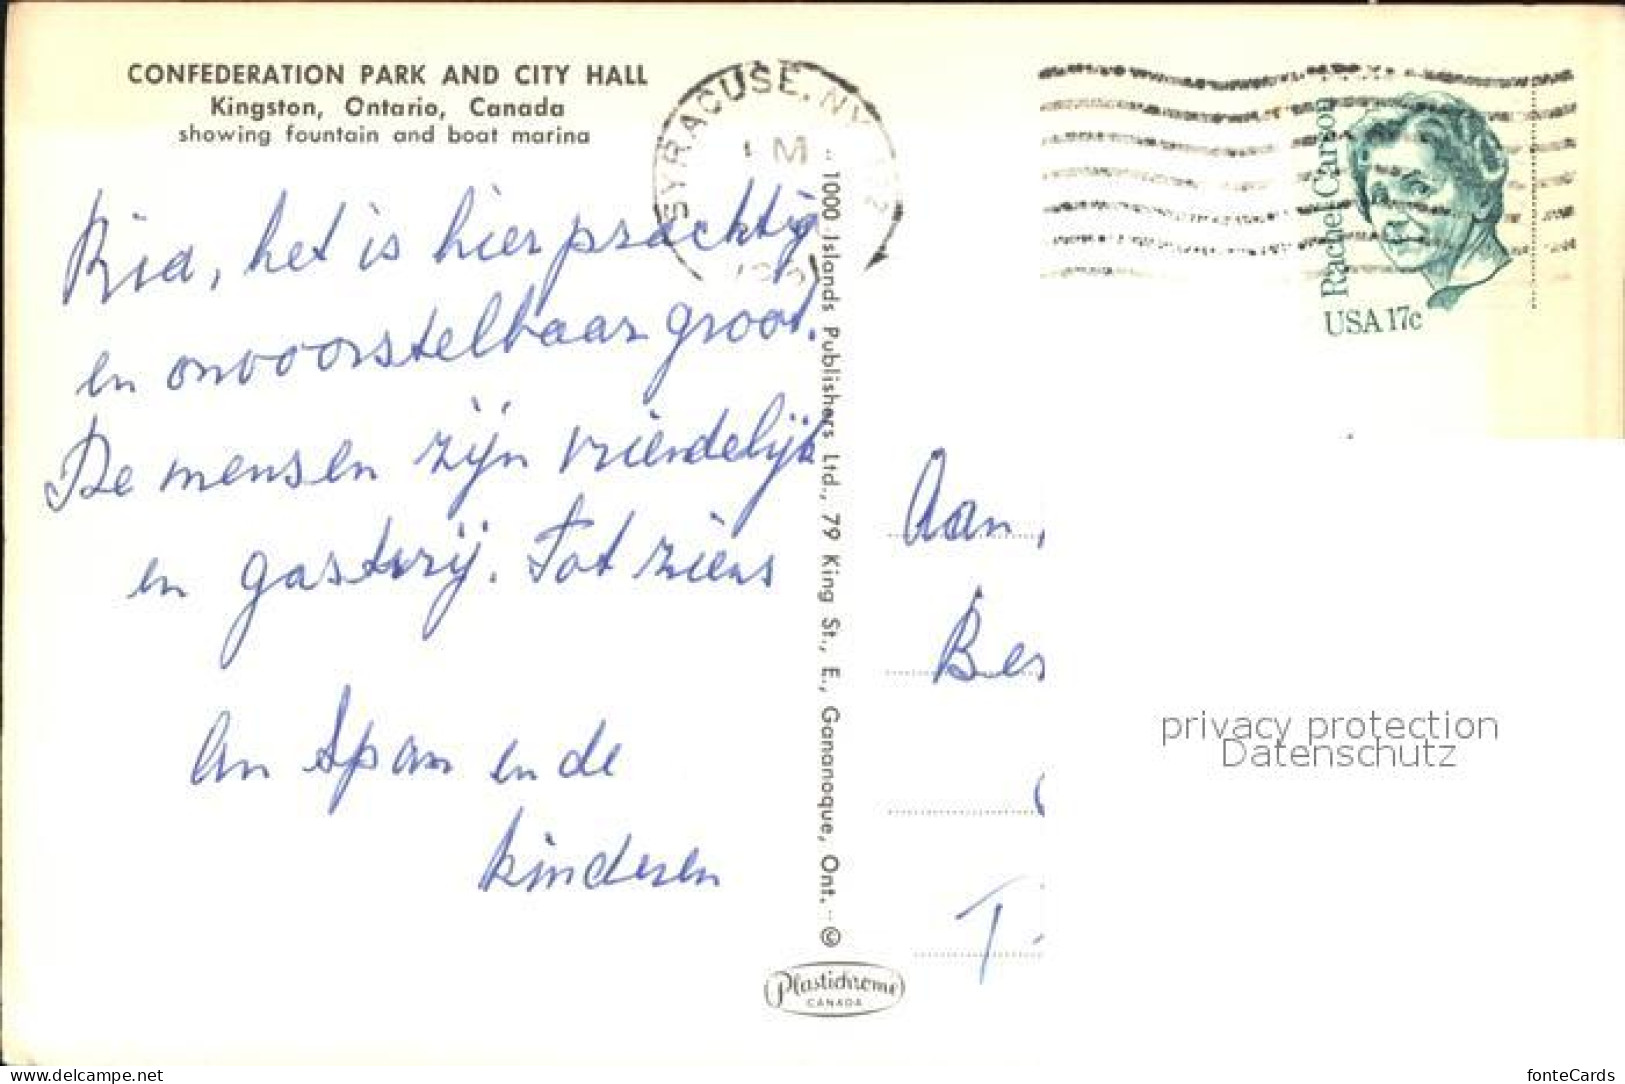 CONFEDERATION PARK AND CITY HALL
Kingston, Ontario, Canada
showing fountain and boat marina
SYRACUSE, NY
Rachel Carson
USA 17c
Ria, het is hier prachtig
en onvoorstelbaar groot.
De mensen zijn vriendelijk
en gastvrij. Tot ziens
An Span en de
kinderen
1000 Islands Publishers Ltd., 79 King St., E., Gananoque, Ont. ©
Plastichrome
CANADA
Aan
Bes
T
privacy protection
Datenschutz
www.delcampe.net
fonteCards